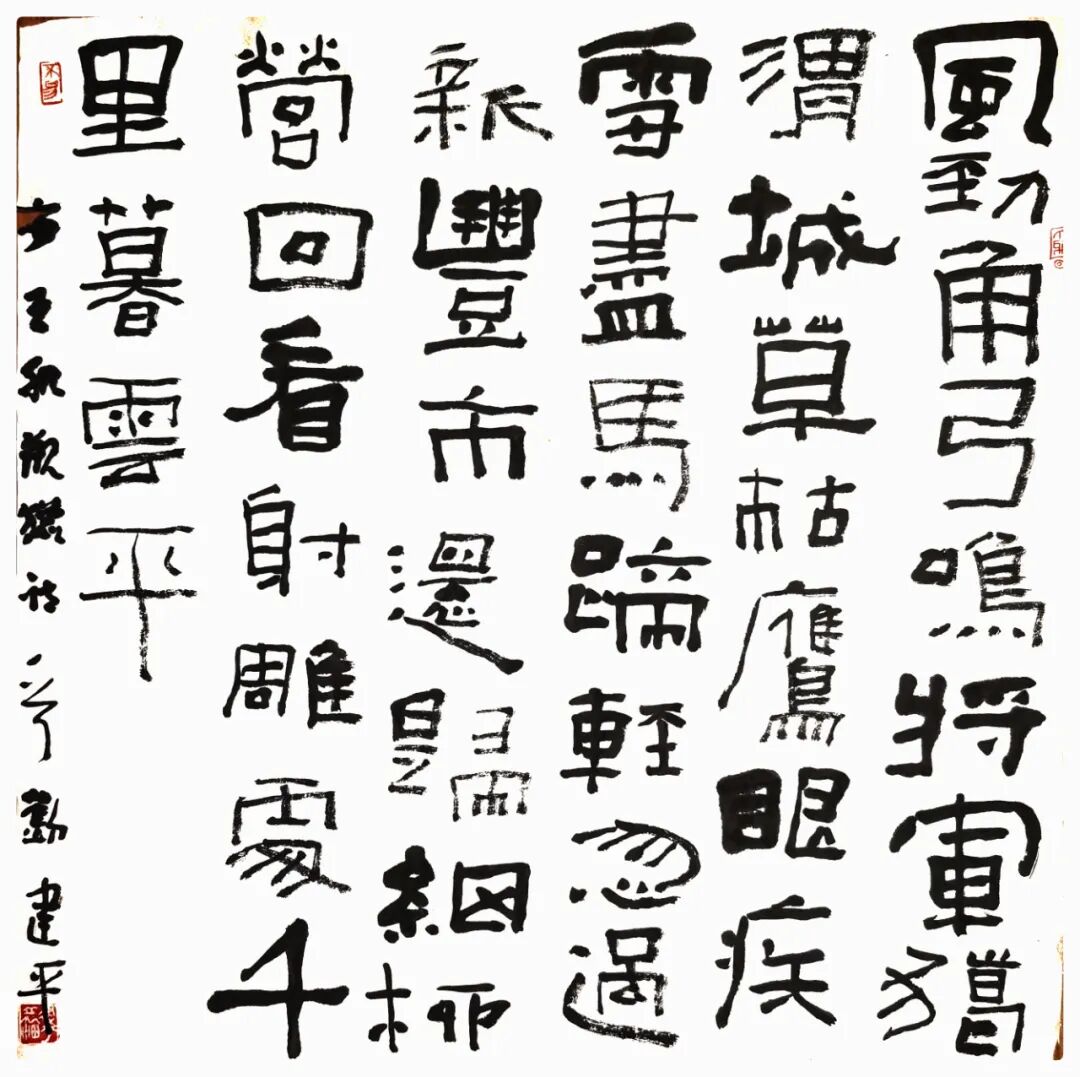 風勁角弓鳴將軍獵
渭城草枯鷹眼疾
雪盡馬蹄輕忽過
新豐市還歸細柳
營回看射雕處千
里暮雲平
右王維觀獵詩 建平